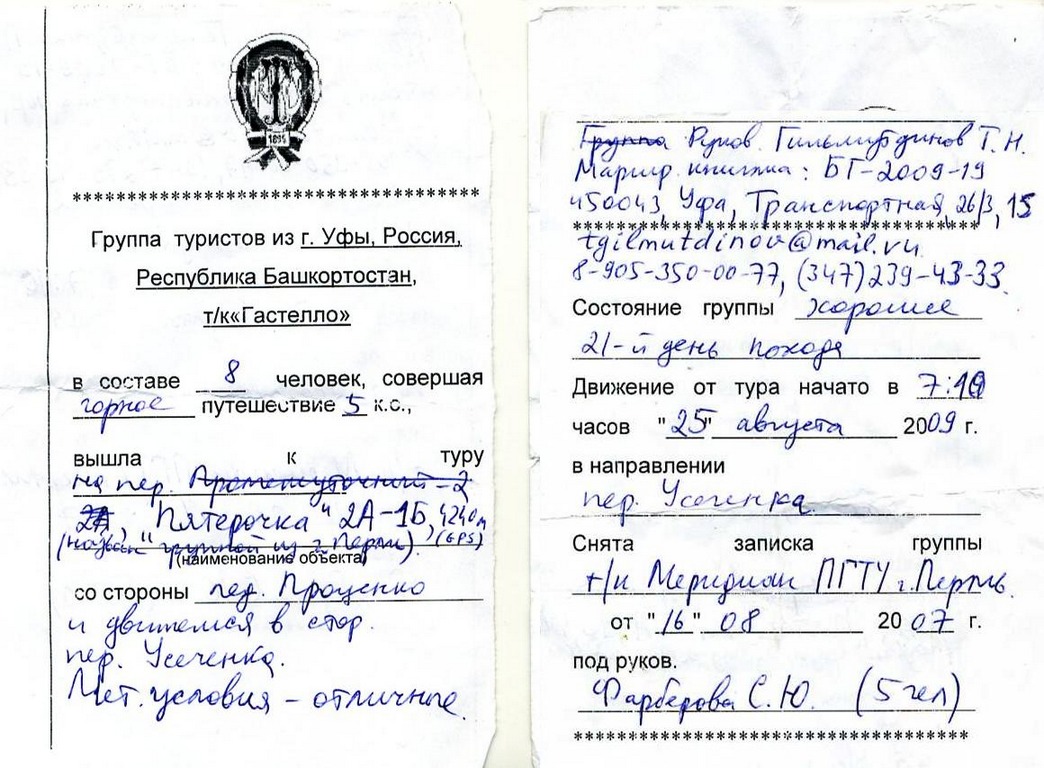 1895
***********************************
Группа туристов из г. Уфы, Россия,
Республика Башкортостан,
т/к«Гастелло»
в составе 8 человек, совершая
горное путешествие 5 к.с.,
вышла к туру
на пер. Промежуточный-2
2А, "Пятерочка" 2А-1Б, 4240м
(назван группой из г. Перми). (GPS)
(наименование объекта)
со стороны лед. Проценко
и движемся в стор.
пер. Усеченка.
Мет. условия - отличные.
Группа Руков. Гильмутдинов Т. Н.
Маршр. книжка: БТ-2009-19
450043, Уфа, Транспортная, 26/3, 15
***********************************
tgilmutdinov@mail.ru
8-905-350-00-77, (347)239-43-33.
Состояние группы хорошее
21-й день похода
Движение от тура начато в 7:10
часов "25" августа 2009 г.
в направлении
пер. Усеченка
Снята записка группы
т/к Меридиан ПГТУ г. Пермь
от "16" 08 2007 г.
под руков.
Фарберова С. Ю. (5 чел)
***********************************